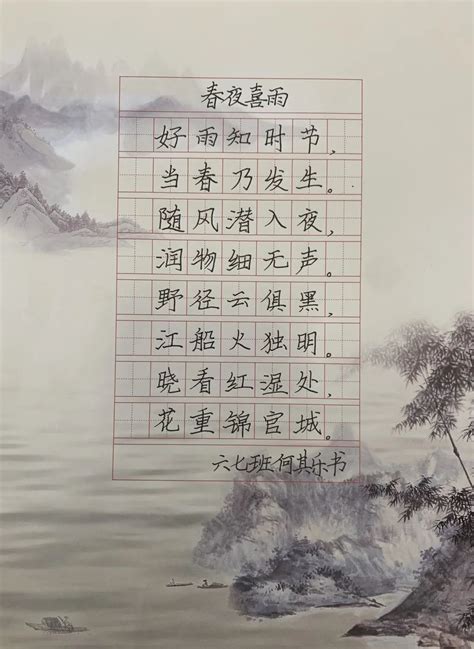 春夜喜雨
好雨知时节，
当春乃发生。
随风潜入夜，
润物细无声。
野径云俱黑，
江船火独明。
晓看红湿处，
花重锦官城。
六七班.何其乐书